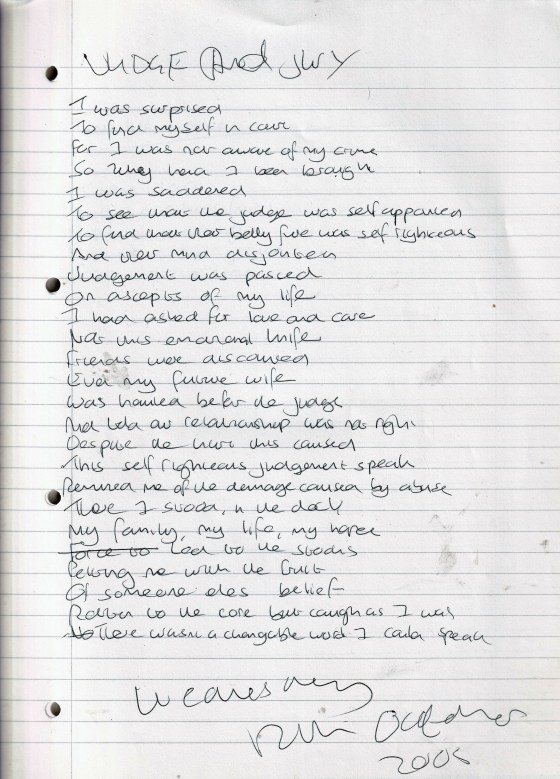 JUDGE And JURY
I was surprised
To find myself in court
For I was not aware of my crime
So Why had I been brought
I was saddened
To see that the judge was self appointed
To find that their belly fire was self righteous
And their mind disjointed
Judgement was passed
On ascepts of my life
I had asked for love and care
Not this emotional knife
Friends were discarded
Even my future wife
was hauled before the judge
And told our relationship was not right
Despite the hurt this caused
This self righteous judgement speak
Remined me of the damage caused by abuse
There I stood, in the dock
My family, my life, my hopes
Force to Led to the stocks
Pelting me with the fruit
Of someone elses belief
Rotten to the core but caught as I was
There wasnt a changable word I could speak
Wednesday
October